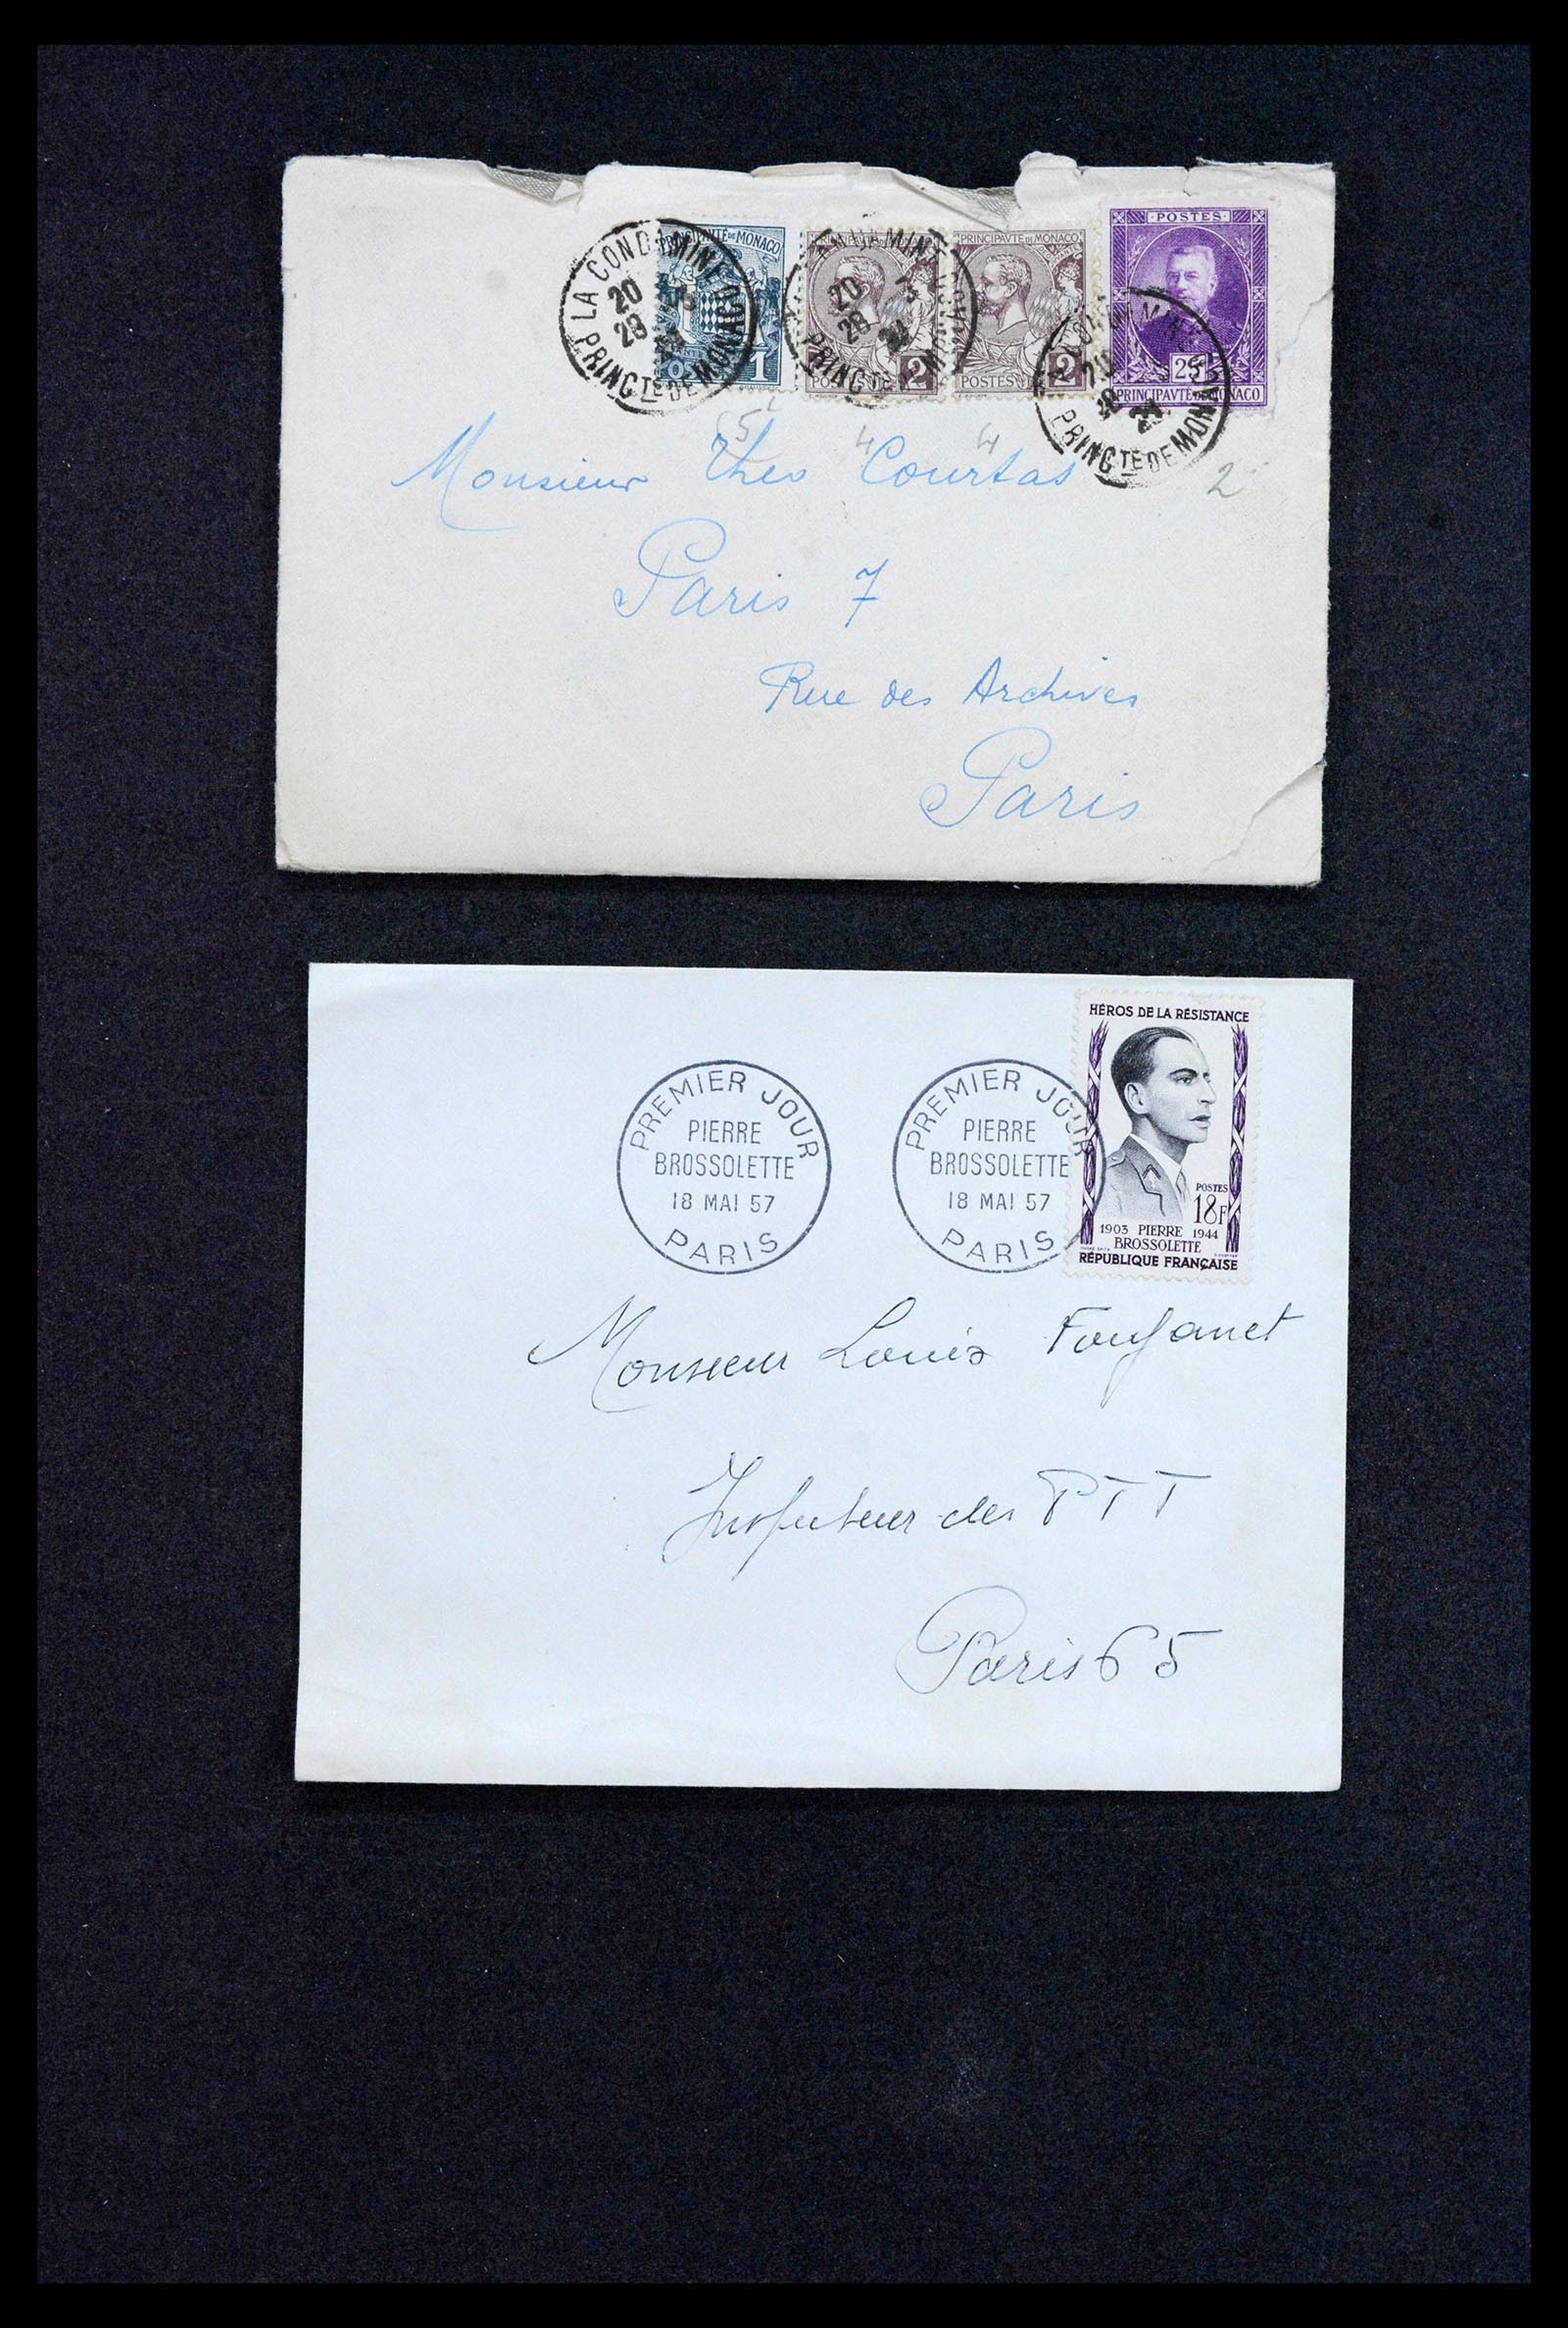 LA CONDAMINE
20
28
PRINCTE DE MONACO
PRINCIPAVTÉ DE MONACO
1
20
28
PRINCTE DE MONACO
POSTES
2
PRINCIPAVTÉ DE MONACO
POSTES
2
POSTES
25
PRINCIPAVTÉ DE MONACO
PRINCTE DE MONACO
5
4
4
2
Monsieur Theo Courtas
Paris 7
Rue des Archives
Paris
HÉROS DE LA RÉSISTANCE
POSTES
18F
1903 PIERRE 1944
BROSSOLETTE
RÉPUBLIQUE FRANÇAISE
PREMIER JOUR
PIERRE
BROSSOLETTE
18 MAI 57
PARIS
PREMIER JOUR
PIERRE
BROSSOLETTE
18 MAI 57
PARIS
Monsieur Louis
Inspecteur des PTT
Paris 65